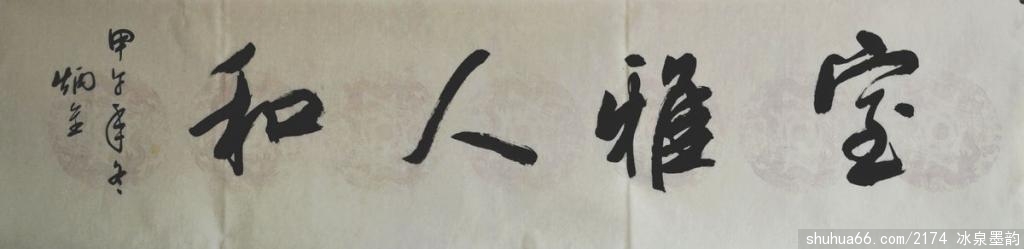 室雅人和
甲午年冬
炳全
shuhua66.com/2174 冰泉墨韵